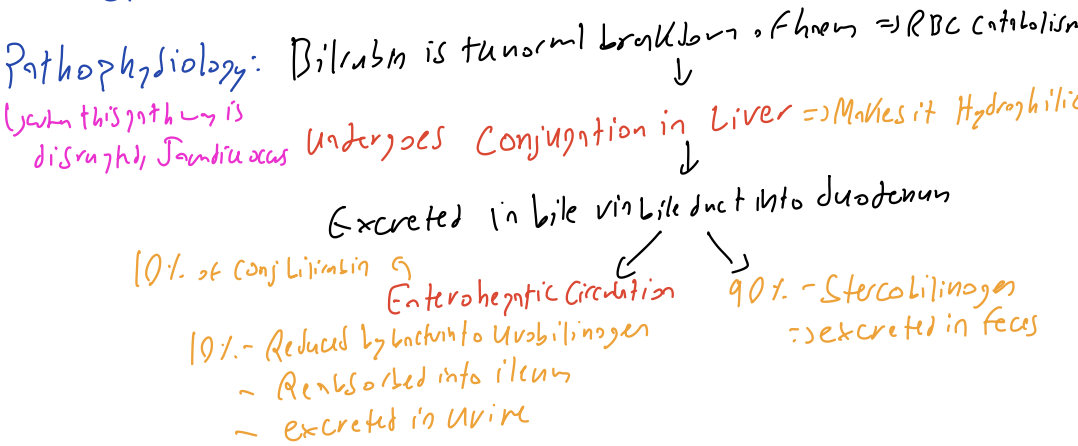 Pathophysiology: Bilirubin is tunormal breakdown of haem => RBC Catabolism
when this pathway is
disrupted, Jaundice occurs
Undergoes Conjugation in Liver => Makes it Hydrophilic
Excreted in bile via bile duct into duodenum
10% of Conj bilirubin
Enterohepatic Circulation
90% - Stercobilinogen
=> excreted in feces
10% - Reduced by bact into Urobilinogen
- Reabsorbed into ileum
- excreted in urine